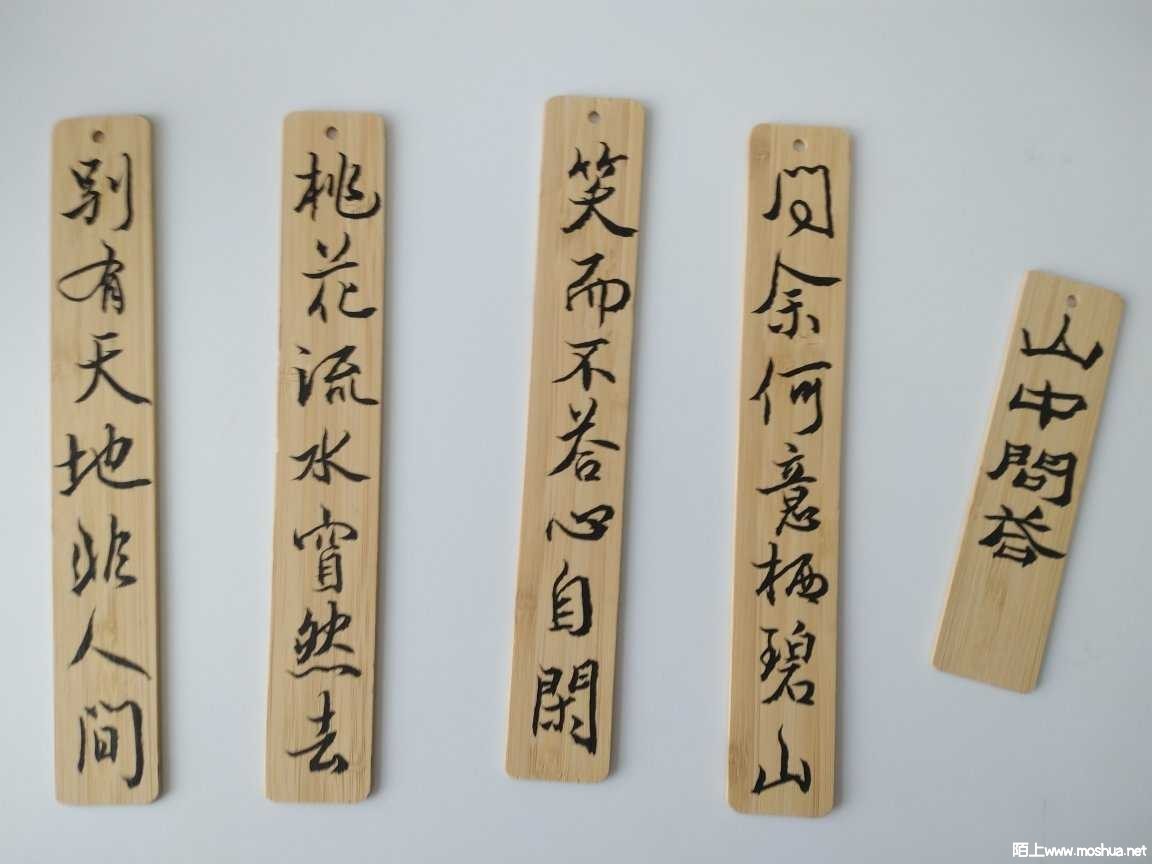 山中問答
问余何意栖碧山
笑而不答心自閑
桃花流水窅然去
別有天地非人间
陌上www.moshua.net